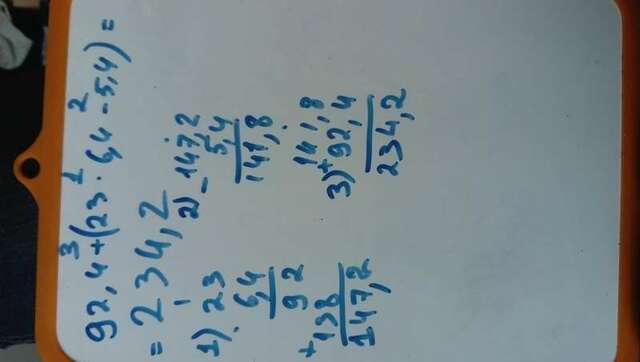 92,4+(23·6,4-5,4)=
=234,2
1) 23
6,4
92
+138
147,2
2) -147,2
5,4
141,8
3) +141,8
92,4
234,2